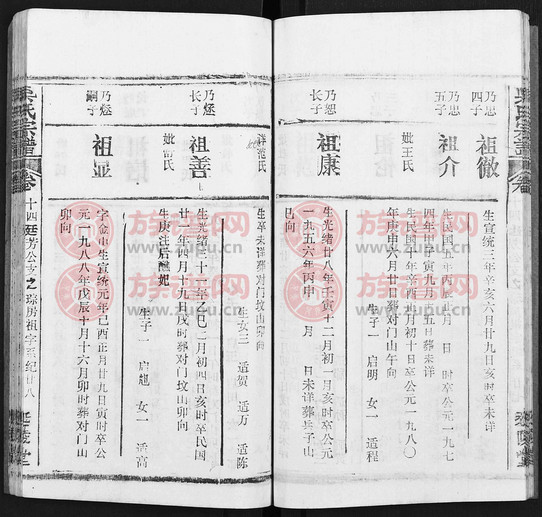 吴氏宗谱
卷
延陵堂
乃忠
四子
祖徹
生宣统三年辛亥六月廿九日亥时卒未详
乃忠
五子
祖介
妣王氏
生民国五年丙辰 月 日 时卒公元一九七
四年甲寅九月 五日葬未详
生民国十年 二月初十日卒公元一九八〇
年庚申六月廿日葬对门山午向
生子一 启明 女一 适程
乃恕
长子
祖康
生光绪廿八年壬寅十二月初一日亥时卒公元
一九五六年丙申 月 日未详葬 子山
巳向
妣范氏
生卒未详葬对门坟山卯向
生女三 适贺 适万 适陈
乃燧
长子
祖善
妣雷氏
生光绪三十一年乙巳二月初四日亥时卒民国
廿二年四月十九日戌时葬对门坟山卯向
生庚注后醮妮
生子一 启龍 女一 适高
乃燧
嗣子
祖显
字金山生宣统元年己酉正月廿八日寅时卒公
元一九八八年戊辰十月十六月卯时葬对门山
卯向
吴氏宗谱
卷
十四廷芳公支之琮房祖字 纪廿八
延陵堂
族谱网
zupu.cn